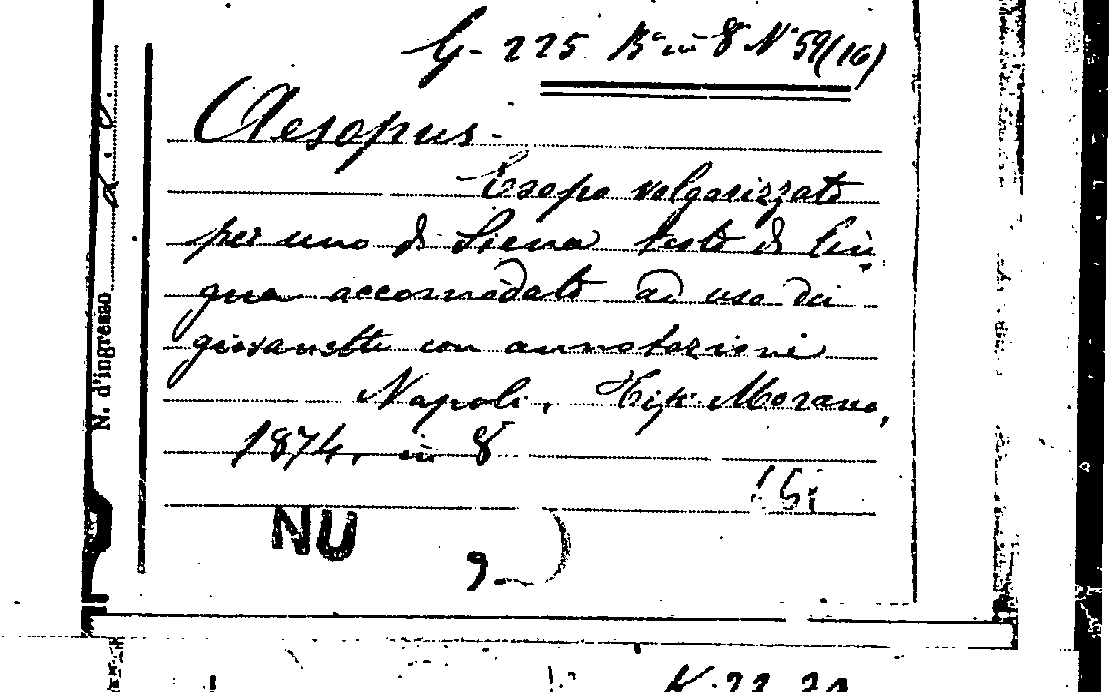 G- 225 Bᵃ in 8 N 59(16)
Aesopus.
Esopo volgarizzato
per uno di Siena testo di lin
gua accomodato ad uso dei
giovanetti con annotazioni
Napoli, Tip: Morano,
1874, in 8
N. d'ingresso
NU